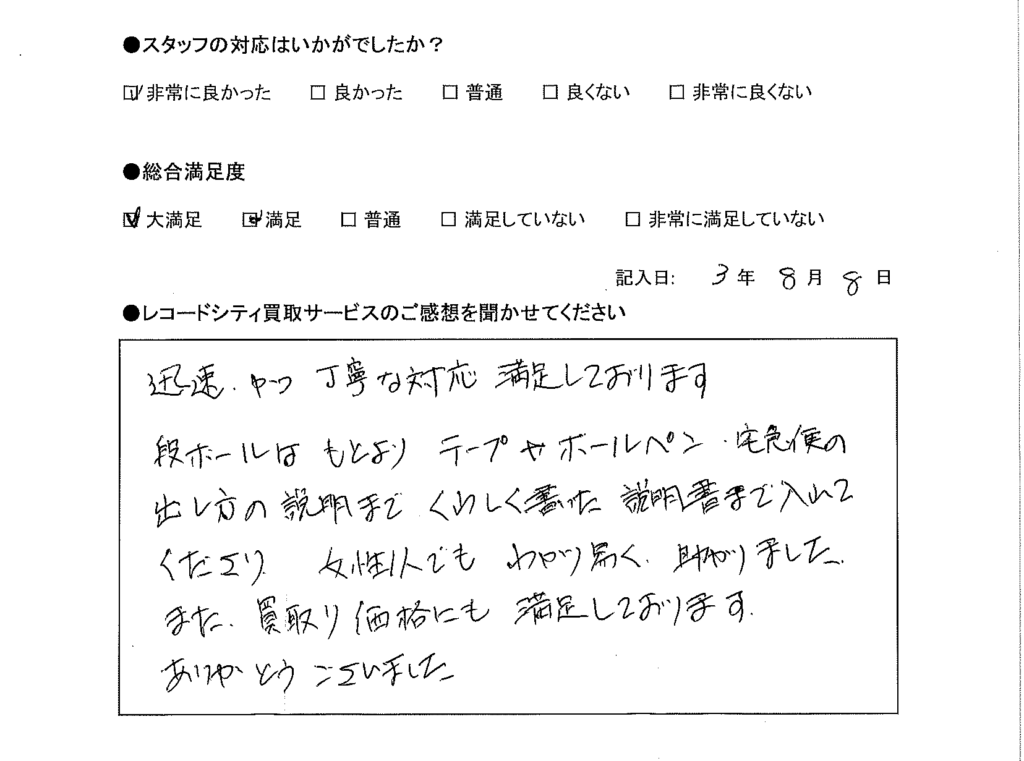 ●スタッフの対応はいかがでしたか？
☑非常に良かった □良かった □普通 □良くない □非常に良くない
●総合満足度
☑大満足 ☑満足 □普通 □満足していない □非常に満足していない
記入日: 3年 8月 8日
●レコードシティ買取サービスのご感想を聞かせてください
迅速、かつ 丁寧な対応 満足しております
段ボールは もとより テープやボールペン、宅急便の
出し方の説明まで くわしく書いた 説明書まで入れて
くださり 女性1人でも わかり易く、助かりました。
また、買取り価格にも 満足しております。
ありがとうございました